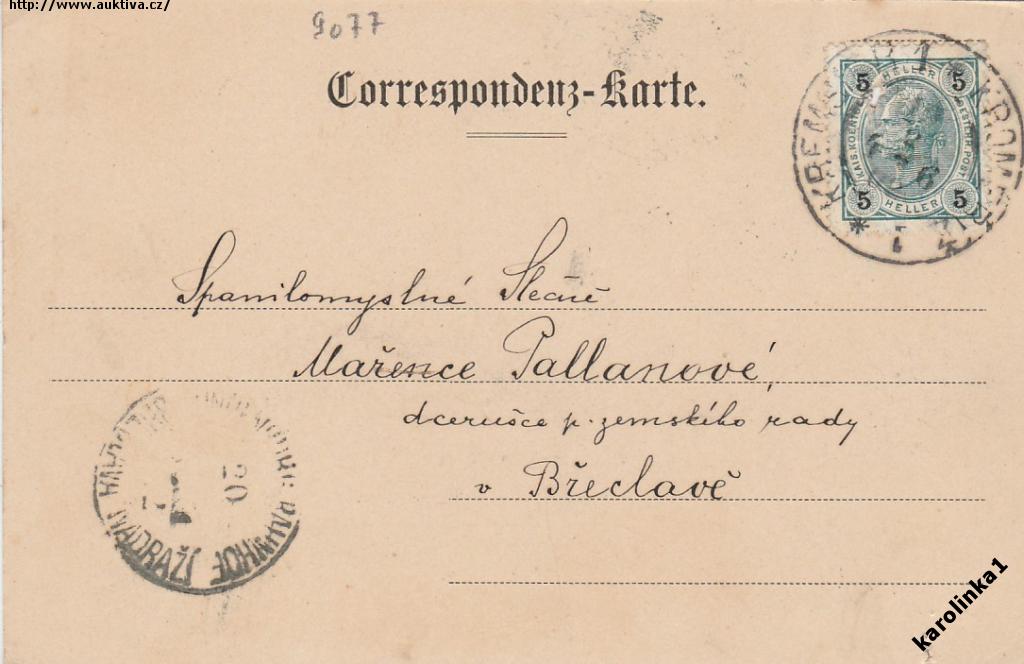 http://www.auktiva.cz/
9077
Correspondenz-Karte.
5 HELLER 5
KAIS. KOENIGL. OESTERR. POST
5 HELLER 5
KREMSIER 1 * KROMĚŘÍŽ 1 *
Spanilomyslné Slečně
Mařence Pallanové,
dcerušce p. zemského rady
v Břeclavě
20
NÁDRAŽÍ
karolinka1